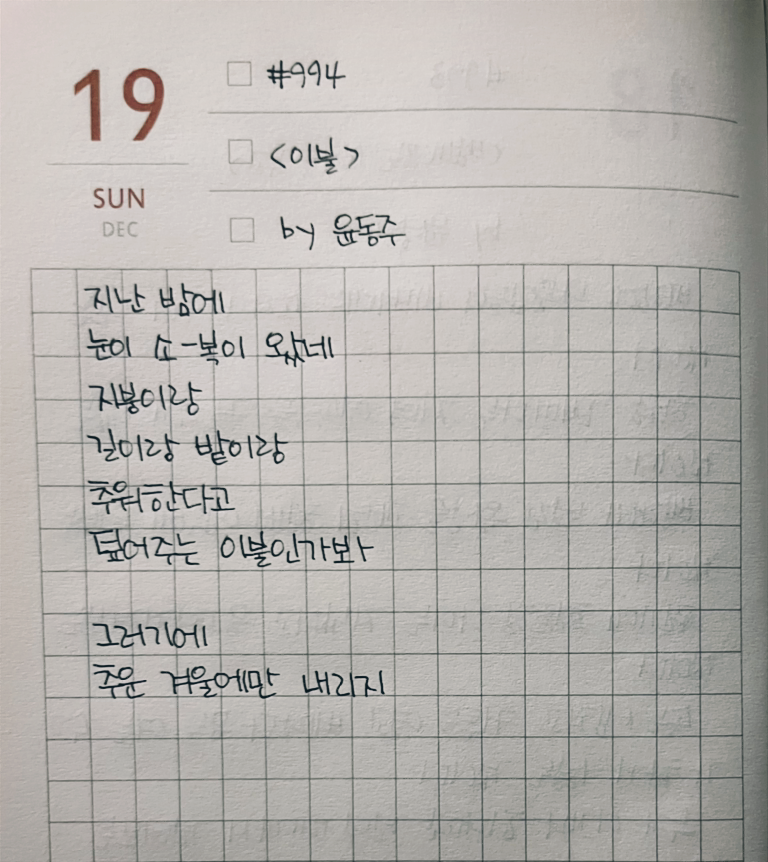 19
SUN
DEC
#994
<이불>
by 윤동주
지난 밤에
눈이 소-복이 왔네
지붕이랑
길이랑 밭이랑
추워한다고
덮어주는 이불인가봐
그러기에
추운 겨울에만 내리지